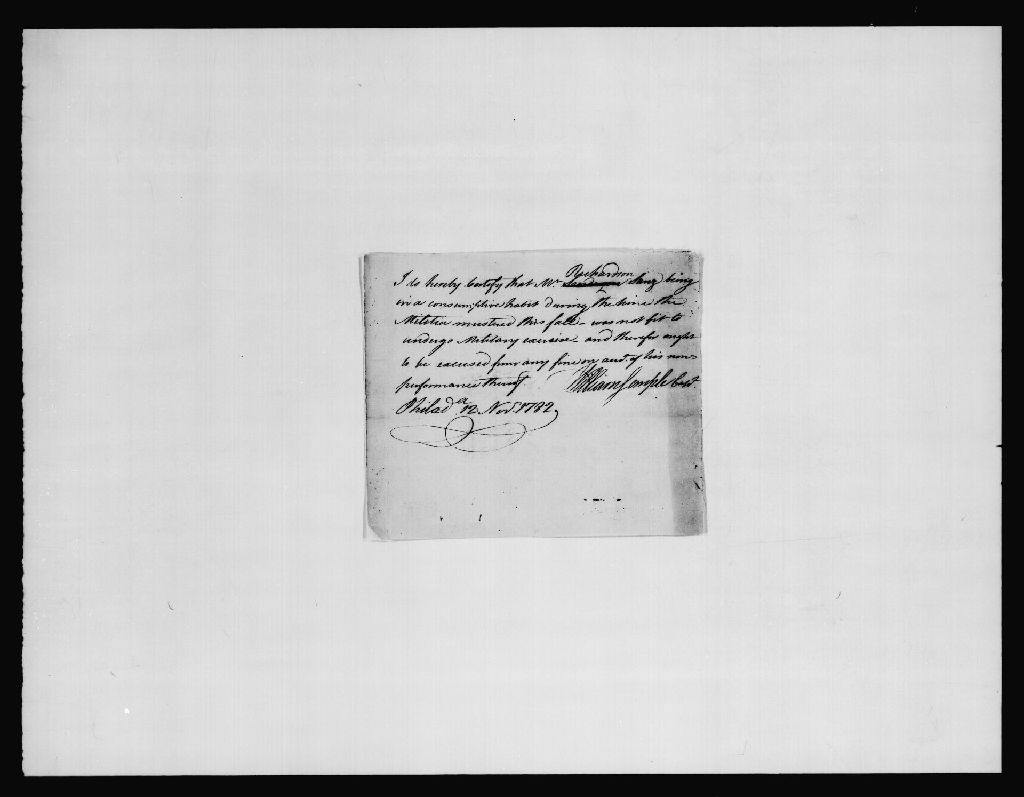 Richardson
I do hereby Certify that Mr. Sanz being
in a consumptive habit during the time the
Militia mustered this fall - was not fit to
undergo Military exercise - and therefore ought
to be excused from any fine on acct. of his non-
performance thereof William Semple Capt
Philada. 12 Novr. 1782